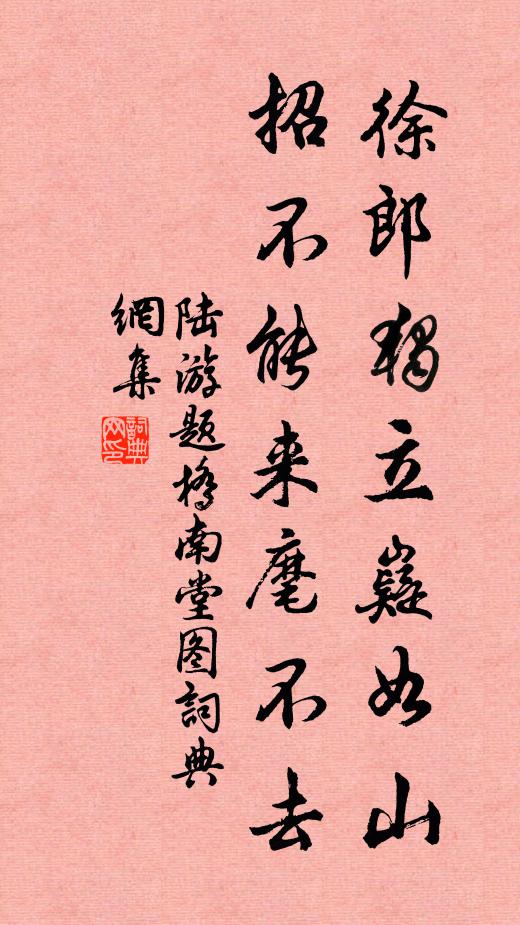 徐郎獨立嶷如山
招不能来麾不去
陆游题橋南堂图詞典
網集
詞典网印